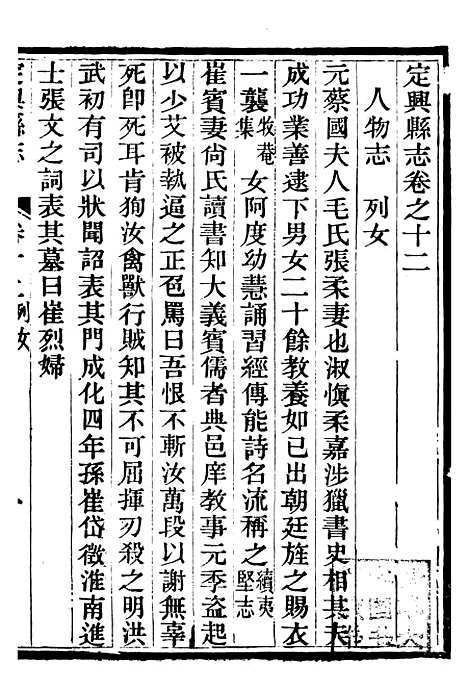 定興縣志卷之十二
人物志　列女
元蔡國夫人毛氏張柔妻也淑愼柔嘉涉獵書史相其夫
成功業善逮下男女二十餘教養如已出朝廷旌之賜衣
一襲牧菴集女阿度幼慧誦習經傳能詩名流稱之續夷堅志
崔賓妻尙氏讀書知大義賓儒者典邑庠教事元季盜起
以少艾被執逼之正色罵曰吾恨不斬汝萬段以謝無辜
死卽死耳肯狥汝禽獸行賊知其不可屈揮刃殺之明洪
武初有司以狀聞詔表其門成化四年孫崔岱徵淮南進
士張文之詞表其墓曰崔烈婦
定興縣志　卷十二列女